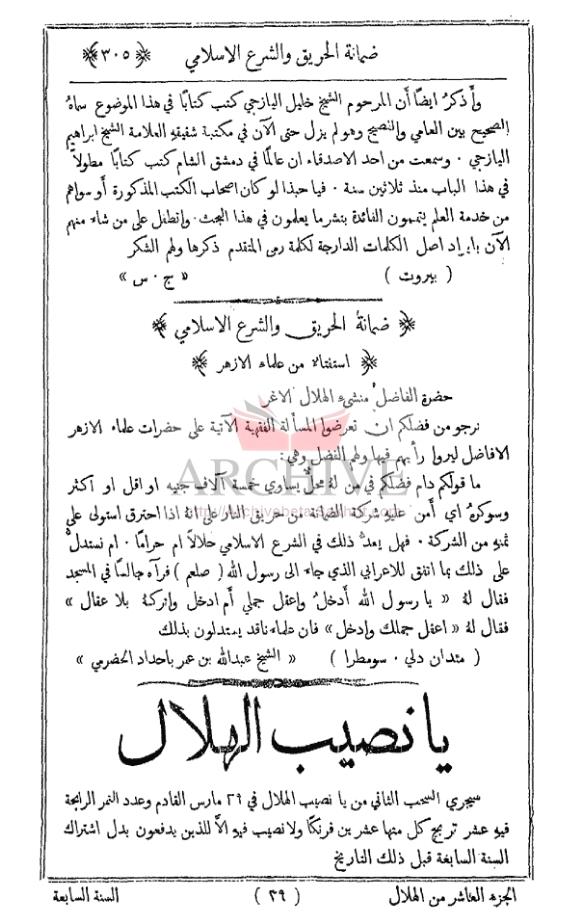 ضمانة الحريق والشرع الاسلامي ﴿٣٠٥﴾
وأذكرُ ايضاً أن المرحوم الشيخ خليل اليازجي كتب كتاباً في هذا الموضوع سماهُ
الصحيح بين العامي والفصيح وهو لم يزل حتى الآن في مكتبة شقيقهِ العلامة الشيخ ابراهيم
اليازجي . وسمعت من احد الاصدقاء ان عالماً في دمشق الشام كتب كتاباً مطولاً
في هذا الباب منذ ثلاثين سنة . فيا حبذا لو كان اصحاب الكتب المذكورة أو سواهم
من خدمة العلم يتممون الفائدة بنشر ما يعلمون في هذا البحث وأتطفل على من شاء منهم
الآن بايراد اصل الكلمات الدارجة لكلمة رمى المتقدم ذكرها ولهم الشكر
( بيروت ) « ج . س »
﴿ ضمانةُ الحريق والشرع الاسلامي ﴾
﴿ استفتاء من علماء الازهر ﴾
حضرة الفاضل منشىء الهلال الاغر
نرجو من فضلكم ان تعرضوا المسألة الفقهية الآتية على حضرات علماء الازهر
الافاضل ليروا رأيهم فيها ولهم الفضل وهي :
ما قولكم دام فضلكم في من لهُ محلٌّ يساوي خمسة آلاف جنيه او اقل او اكثر
وسوكرهُ اي أمن عليهِ شركة الضمانة من حريق النار على انهُ اذا احترق استولى على
ثمنهِ من الشركة . فهل يعدُّ ذلك في الشرع الاسلامي حلالاً ام حراماً . ام نستدلُّ
على ذلك بما اتفق للاعرابي الذي جاء الى رسول الله ( صلعم ) فرآه جالساً في المسجد
فقال لهُ « يا رسول الله أدخلُ واعقل جملي أم ادخل واتركهُ بلا عقال »
فقال لهُ « اعقل جملك وادخل » فان علماءنا قد يستدلون بذلك
( متدان دلي . سومطرا ) « الشيخ عبدالله بن عمر باحداد الحضرمي »
يا نصيب الهلال
سيجري السحب الثاني من يا نصيب الهلال في ٢٩ مارس القادم وعدد النمر الرابحة
فيهِ عشر تربح كل منها عشرين فرنكاً ولا نصيب فيهِ الاَّ للذين يدفعون بدل اشتراك
السنة السابعة قبل ذلك التاريخ
الجزء العاشر من الهلال ( ٣٩ ) السنة السابعة
ARCHIVE